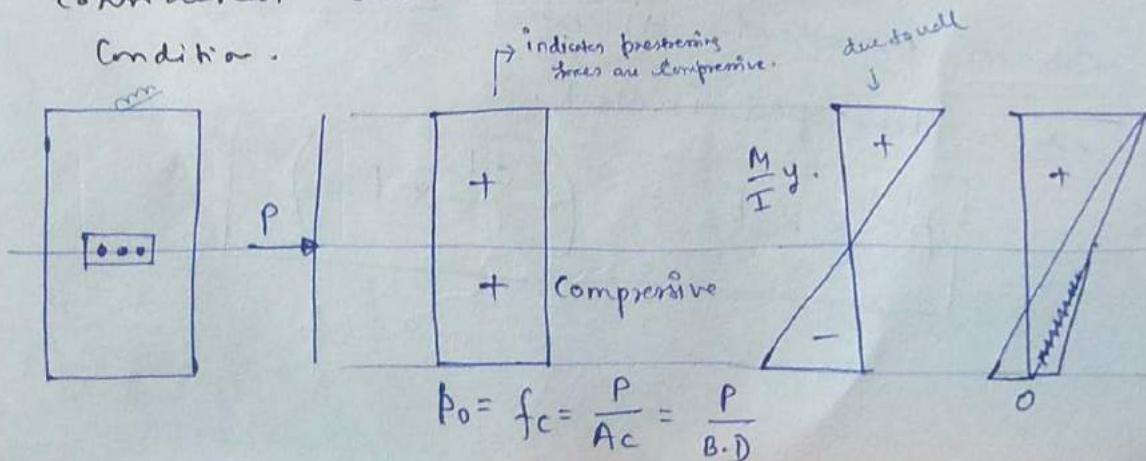 Condition.
indicates prestressing
forces are compressive.
due to udl
P
+
+ Compressive
M/I y.
+
-
+
O
p₀ = f_c = P/A_c = P/B.D